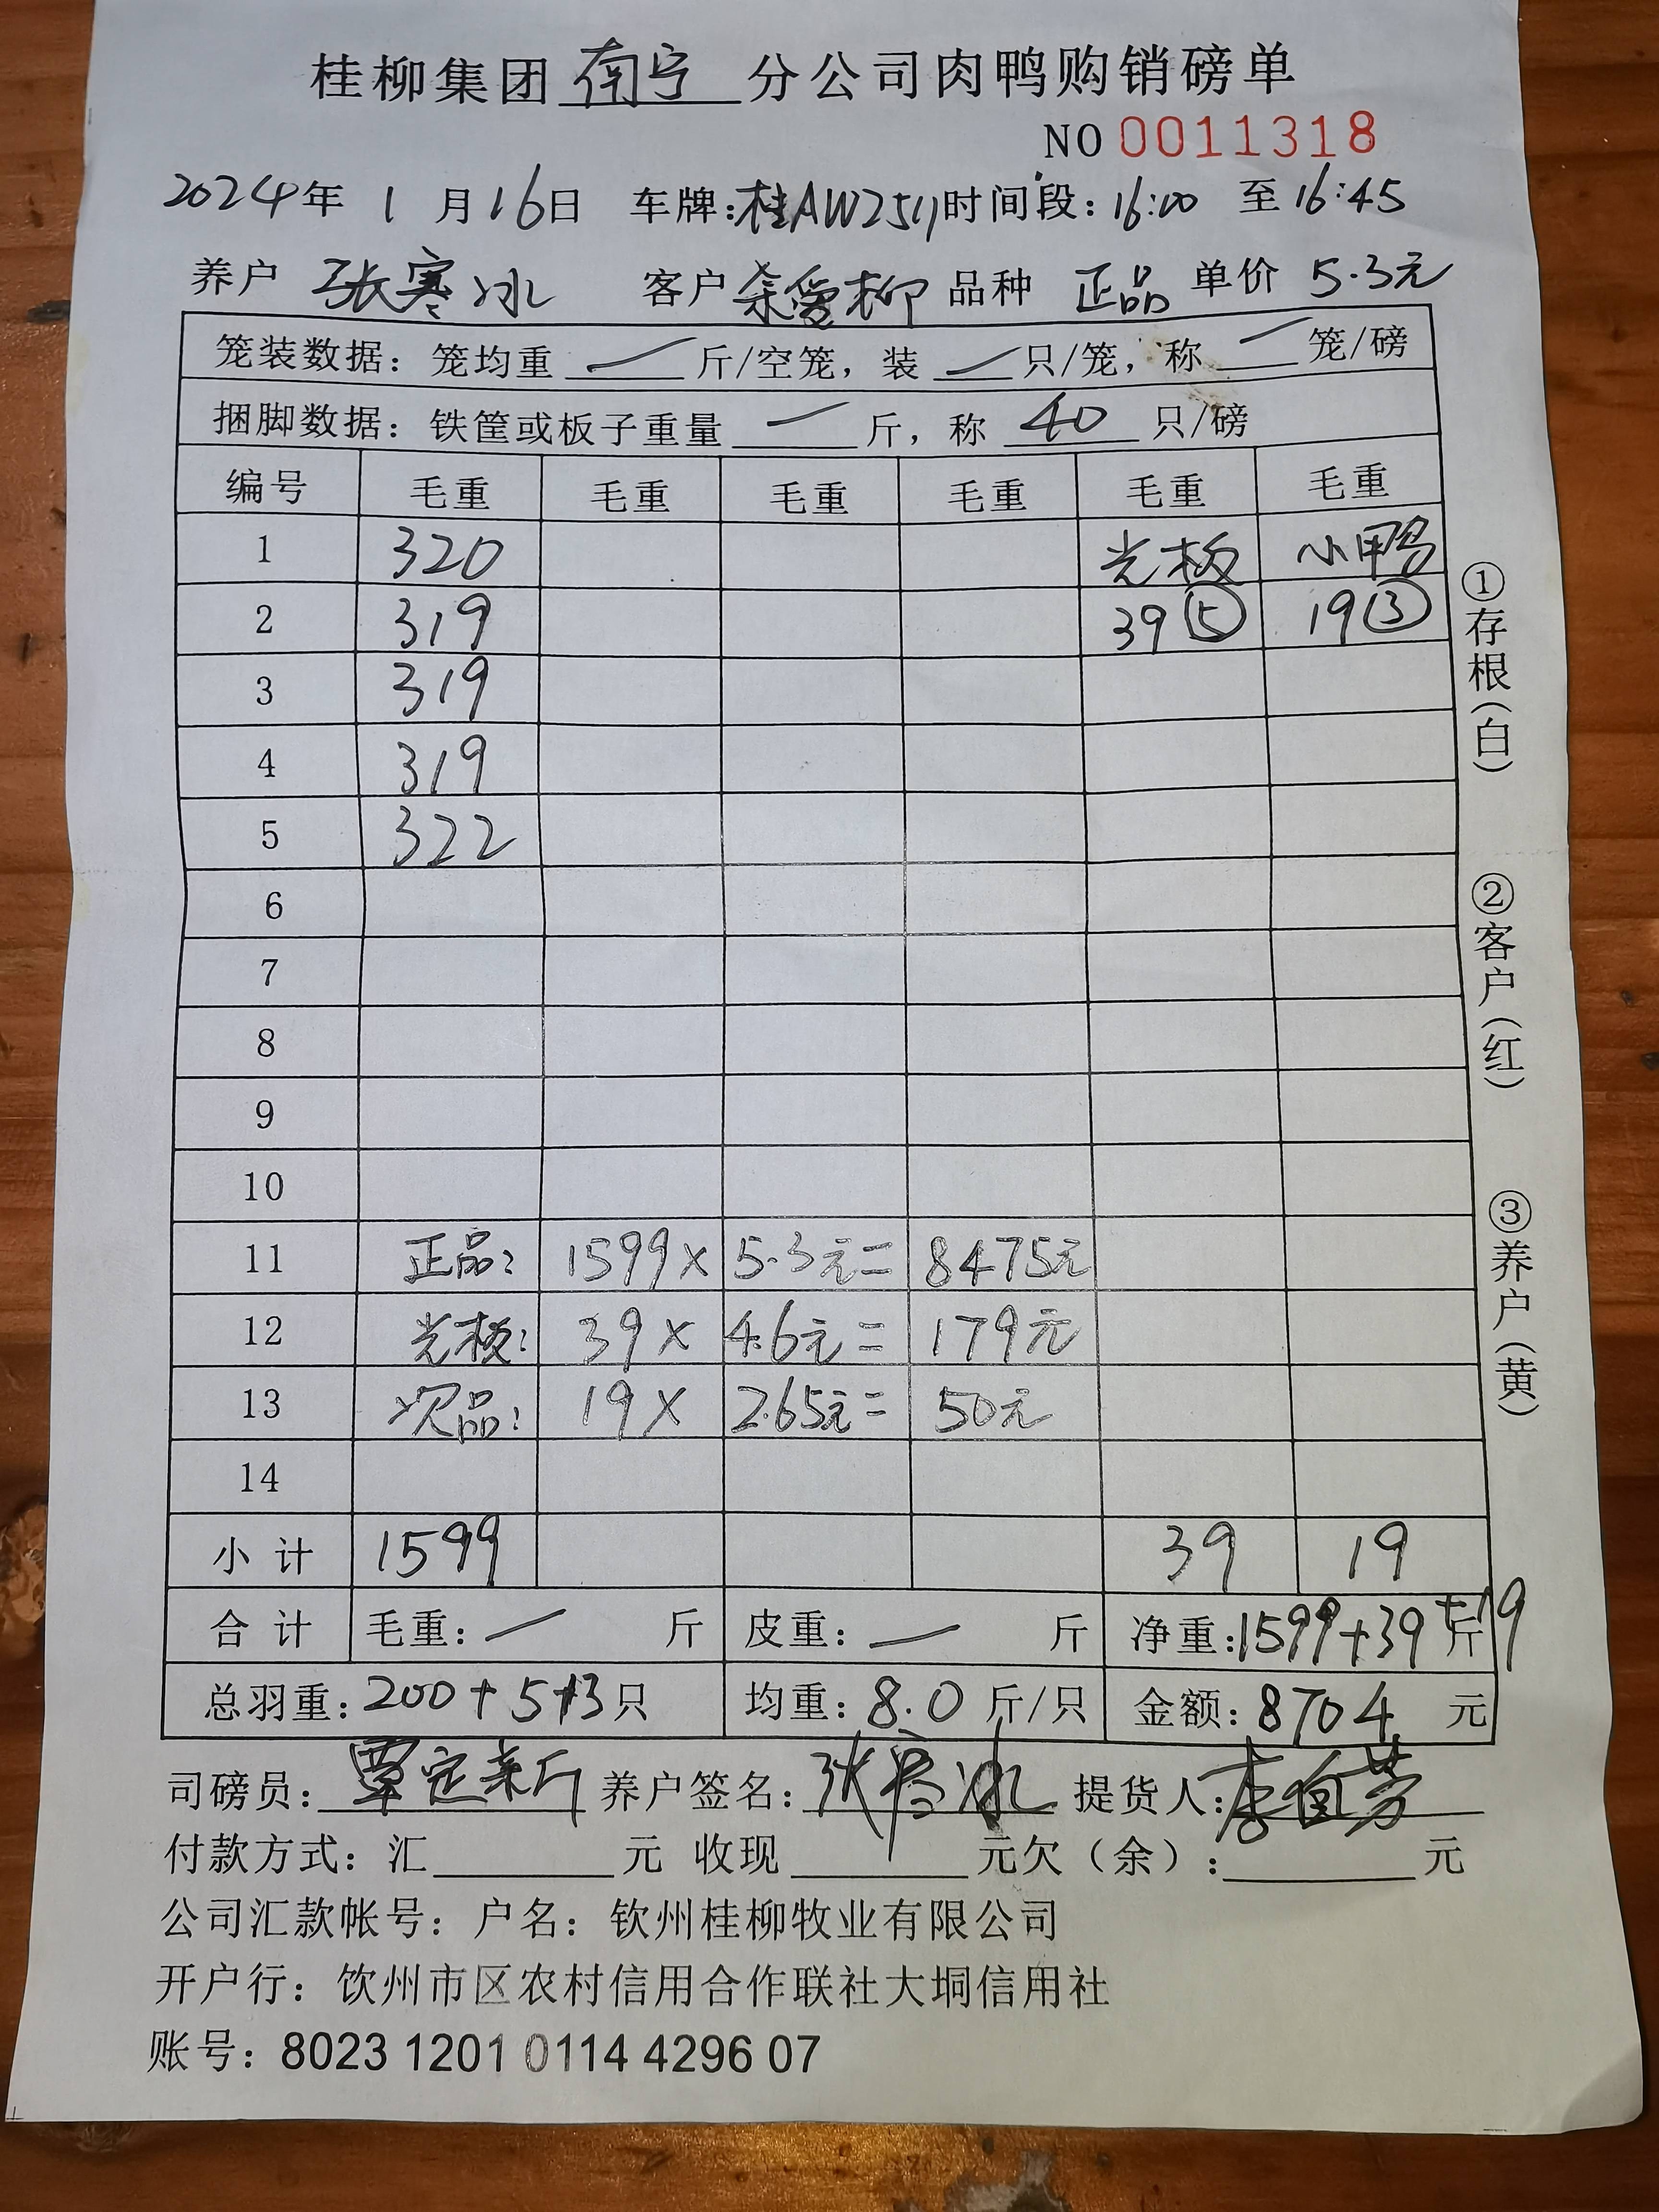 桂柳集团 南宁 分公司肉鸭购销磅单
NO 0011318
2024年 1 月16日 车牌:桂AW2511 时间段: 16:00 至 16:45
养户 张寒冰 客户 余爱柳 品种 正品 单价 5.3元
笼装数据: 笼均重 — 斤/空笼, 装 — 只/笼, 称 — 笼/磅
捆脚数据: 铁筐或板子重量 — 斤, 称 40 只/磅
编号 毛重 毛重 毛重 毛重 毛重 毛重
1 320 光板 小鸭
2 319 39⑤ 19③
3 319
4 319
5 322
6
7
8
9
10
11 正品: 1599× 5.3元= 8475元
12 光板: 39× 4.6元= 179元
13 次品: 19× 2.65元= 50元
14
小计 1599 39 19
合计 毛重: — 斤 皮重: — 斤 净重:1599+39+19斤
总羽重: 200+5+3只 均重: 8.0 斤/只 金额: 8704 元
司磅员: 覃定新 养户签名: 张寒冰 提货人:
付款方式: 汇 元 收现 元欠(余): 元
公司汇款帐号: 户名: 钦州桂柳牧业有限公司
开户行: 饮州市区农村信用合作联社大垌信用社
账号: 8023 1201 0114 4296 07
①存根(白)
②客户(红)
③养户(黄)